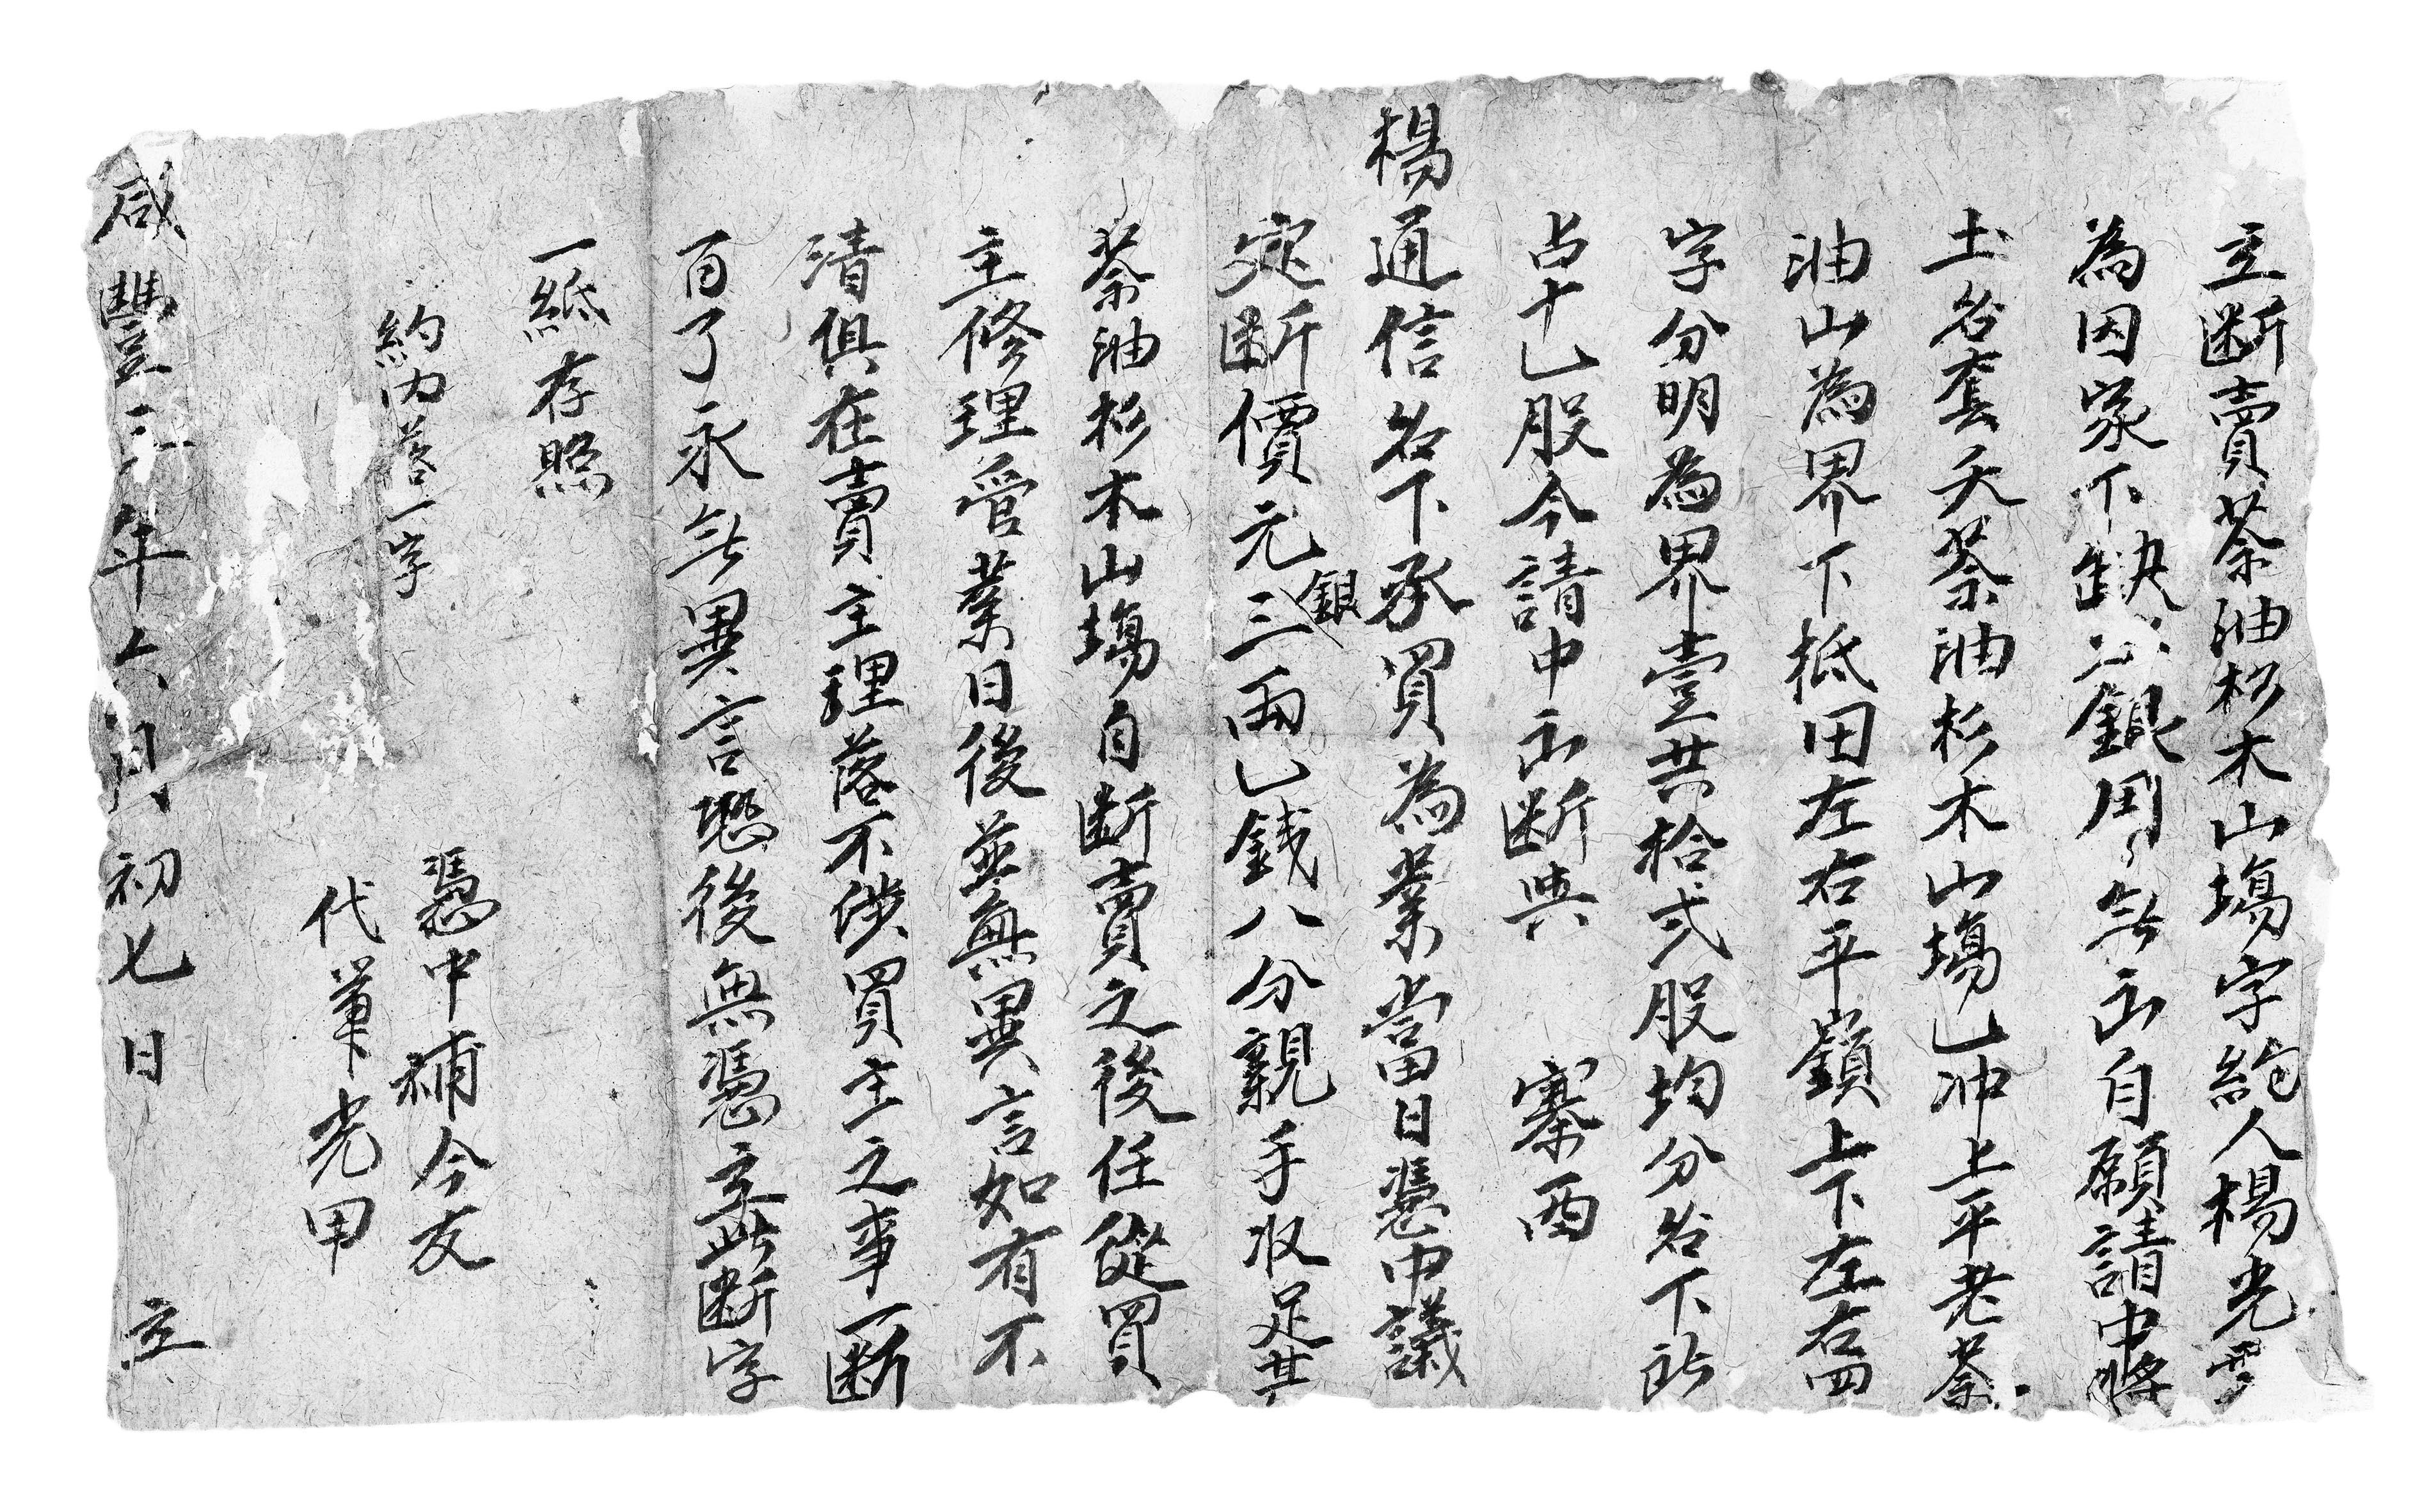 立断賣茶油杉木山塲字約人楊光雲
為因家下缺少銀用無出自願請中將
土名套夭茶油杉木山塲乙冲上平老茶
油山為界下抵田左右平嶺上下左右四
字分明為界壹共拾弍股均分名下所
占十乚股今請中出断與　寨西
楊通信名下承買為業當日憑中議
定断價元銀三兩乚銭八分親手收足其
茶油杉木山塲自断賣之後任從買
主修理管業日後並無異言如有不
清俱在賣主理落不涉買主之事一断
百了永無異言恐後無憑立此断字
一紙存照
約内落一字
憑中補今友
代筆光甲
咸豐年六月初七日　立